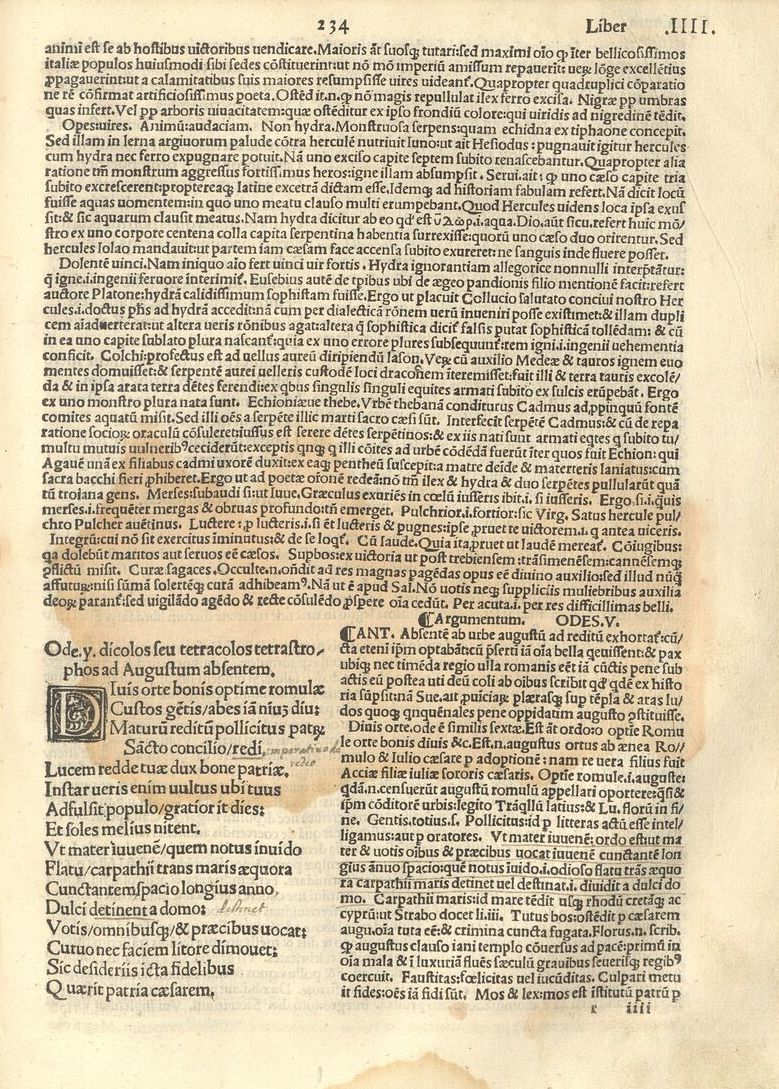 234 Liber .IIII.
animi est se ab hostibus uictoribus uendicare. Maioris āt suosq; tutari: sed maximi oīo ꝙ iter bellicosissimos
italiæ populos huiusmodi sibi sedes cōstituerint: ut nō mō imperiū amissum repauerīt: ueꝝ lōge excellētius
ꝓpagauerint: ut a calamitatibus suis maiores resumpsisse uires uideant᷑. Quapropter quadruplici cōparatio
ne rē cōfirmat artificiosissimus poeta. Ostēd it.n. ꝙ nō magis repullulat ilex ferro excisa. Nigræ pp umbras
quas infert. Vel pp arboris uiuacitatem: quæ ostēditur ex ipso frondiū colore: qui uiridis ad nigredinē tēdit.
Opes: uires. Animū: audaciam. Non hydra. Monstruosa serpens: quam echidna ex tiphaone concepit.
Sed illam in lerna argiuorum palude cōtra herculē nutriuit Iuno: ut ait Hesiodus: pugnauit igitur hercules
cum hydra nec ferro expugnare potuit. Nā uno exciso capite septem subito renascebantur. Quapropter alia
ratione tm̄ monstrum aggressus fortissimus heros: igne illam absumpsit. Serui. ait: ꝙ uno cæso capite tria
subito excrescerent: proptereaq; latine excetrā dictam esse. Idemq; ad historiam fabulam refert. Nā dicit locū
fuisse aquas uomentem: in quo uno meatu clauso multi erumpebant. Quod Hercules uidens loca ipsa exus
sit: & sic aquarum clausit meatus. Nam hydra dicitur ab eo qd' est ὕδωρ .i. aqua. Dio. aūt sicu. refert huic mō/
stro ex uno corpore centena colla capita serpentina habentia surrexisse: quorū uno cæso duo orirentur. Sed
hercules Iolao mandauit: ut partem iam cæsam face accensa subito exureret: ne sanguis inde fluere posset.
Dolentē uinci. Nam iniquo aīo fert uinci uir fortis. Hydra ignorantiam allegorice nonnulli interp̄tātur:
q̄ igne .i. ingenii feruore interimit᷑. Eusebius autē de tp̄ibus ubi de ægeo pandionis filio mentionē facit: refert
auctore Platone: hydrā calidissimum sophistam fuisse. Ergo ut placuit Collucio salutato conciui nostro Her
cules .i. doctus phs ad hydrā accedit: nā cum per dialecticā rōnem uerū inueniri posse existimet: & illam dupli
cem aīaduerterat: ut altera ueris rōnibus agat: altera q̄ sophistica dicit᷑ falsis putat sophisticā tollēdam: & cū
in ea uno capite sublato plura nascant᷑: quia ex uno errore plures subsequunt᷑: item igni .i. ingenii uehementia
conficit. Colchi: profectus est ad uellus aureū diripiendū Iason. Veꝝ cū auxilio Medeæ & tauros ignem euo
mentes domuisset: & serpentē aurei uelleris custodē loci draconem iteremisset: fuit illi & terra tauris excolē/
da & in ipsa arata terra dētes ferendi: ex qbus singulis singuli equites armati subito ex sulcis erūpebāt. Ergo
ex uno monstro plura nata sunt. Echioniæue thebe. Vrbē thebanā conditurus Cadmus ad ꝓpinquū fontē
comites aquatū misit. Sed illi oēs a serpēte illic marti sacro cæsi sūt. Interfecit serpētē Cadmus: & cū de repa
ratione socioꝝ oraculū cōsuleret: iussus est serere dētes serpētinos: & ex iis nati sunt armati eqtes q subito tu/
multu mutuis uulneribꝰ ceciderūt: exceptis qnq; q illi cōites ad urbē cōdēdā fuerūt iter quos fuit Echion: qui
Agauē unā ex filiabus cadmi uxorē duxit: ex eaq; pentheū suscepit: a matre deīde & materteris laniatus: cum
sacra bacchi fieri ꝓhiberet. Ergo ut ad poetæ oronē redeā: nō tm̄ ilex & hydra & duo serpētes pullularūt quā
tū troiana gens. Merses: subaudi si: ut Iuue. Græculus exuriēs in cœlū iusseris ibit .i. si iusseris. Ergo. si .i. q̄uis
merses .i. frequēter mergas & obruas profundo: tn̄ emerget. Pulchrior .i. fortior: sic Virg. Satus hercule pul/
chro Pulcher auētinus. Luctere: ꝓ lucteris .i. si ēt lucteris & pugnes: ipse ꝓruet te uictorem .i. q antea uiceris.
Integrū: cui nō sit exercitus iminutus: & de se loqt᷑. Cū laude. Quia ita ꝓruet ut laudē mereat᷑. Cōiugibus:
qa dolebūt maritos aut seruos eē cæsos. Supbos: ex uictoria ut post trebiensem: trāsimenēsem: cannēsemq;
ꝓflictū misit. Curæ sagaces. Occulte. n. oñdit ad res magnas pagēdas opus eē diuino auxilio: sed illud nūq̄
affuturū: nisi sūmā solertēq; curā adhibeamꝰ. Nā ut ē apud Sal. Nō uotis neq; suppliciis muliebribus auxilia
deoꝝ parant᷑: sed uigilādo agēdo & recte cōsulēdo ꝓspere oīa cedūt. Per acuta .i. per res difficillimas belli.
Ode. y. dicolos seu tetracolos tetrastro/
phos ad Augustum absentem.
DIuis orte bonis optime romulæ
Custos gētis/abes iā niuꝫ diu:
Maturū reditū pollicitus patꝝ
Sācto concilio/redi, imperatiuo de redeo
Lucem redde tuæ dux bone patriæ.
Instar ueris enim uultus ubi tuus
Adfulsit populo/gratior it dies:
Et soles melius nitent.
Vt mater iuuenē/quem notus inuido
Flatu/carpathii trans maris æquora
Cunctantem spacio longius anno,
Dulci detinent a domo: detinet
Votis/omnibusq;/& præcibus uocat:
Curuo nec faciem litore dimouet:
Sic desideriis icta fidelibus
Quærit patria cæsarem.
⸿Argumentum. ODES. V.
⸿CANT. Absentē ab urbe augustū ad reditū exhortat᷑: cū/
cta eteni ip̄m optabāt: ū p̄serti iā oīa bella qeuissent: & pax
ubiq; nec timēda regio ulla romanis eēt iā cūctis pene sub
actis eū postea uti deū coli ab oibus scribit qd' qdē ex histo
ria sūpsit: nā Sue. ait ꝓuīciaꝝ plærasq; sup tēpla & aras lu/
dos quoq; qnquēnales pene oppidatim augusto ꝓstituisse.
Diuis orte. ode ē similis sextæ. Est āt ordo: o optīe Romu
le orte bonis diuis &c. Est. n. augustus ortus ab ænea Ro/
mulo & Iulio cæsare p adoptionē: nam re uera filius fuit
Acciæ filiæ iuliæ sororis cæsaris. Optīe romule .i. auguste:
qdā. n. censuerūt augustū romulū appellari oportere: q̄si &
ip̄m cōditorē urbis: legito Trāqllū latius: & Lu. florū in fi/
ne. Gentis. totius. s. Pollicitus: id p litteras actū esse intel/
ligamus: aut p oratores. Vt mater iuuenē: ordo est: ut ma
ter & uotis oībus & præcibus uocat iuuenē cunctantē lon
gius ānuo spacio: quē notus iuido .i. odioso flatu trās æquo
ra carpathii maris detinet uel destinat .i. diuidit a dulci do
mo. Carpathii maris: id mare tēdit usq; rhodū cretāq; ac
cyprū: ut Strabo docet li. iii. Tutus bos: ostēdit p cæsarem
augu. oīa tuta eē: & crimina cuncta fugata. Florus. n. scrib.
ꝙ augustus clauso iani templo cōuersus ad pacē: primū in
oīa mala & ī luxuriā fluēs sæculū grauibus seuerisq; regibꝰ
coercuit. Faustitas: fœlicitas uel iucūditas. Culpari metu
it fides: oēs iā fidi sūt. Mos & lex: mos est īstitutū patrū p
r iiii